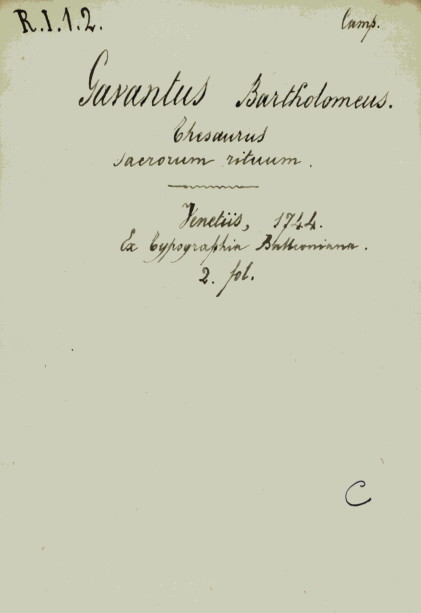 R.I.1.2.
Camp.
Gavantus Bartholomeus.
Thesaurus
sacrorum rituum.
Venetiis, 1744.
Ex Typographia Balleoniana.
2. fol.
C